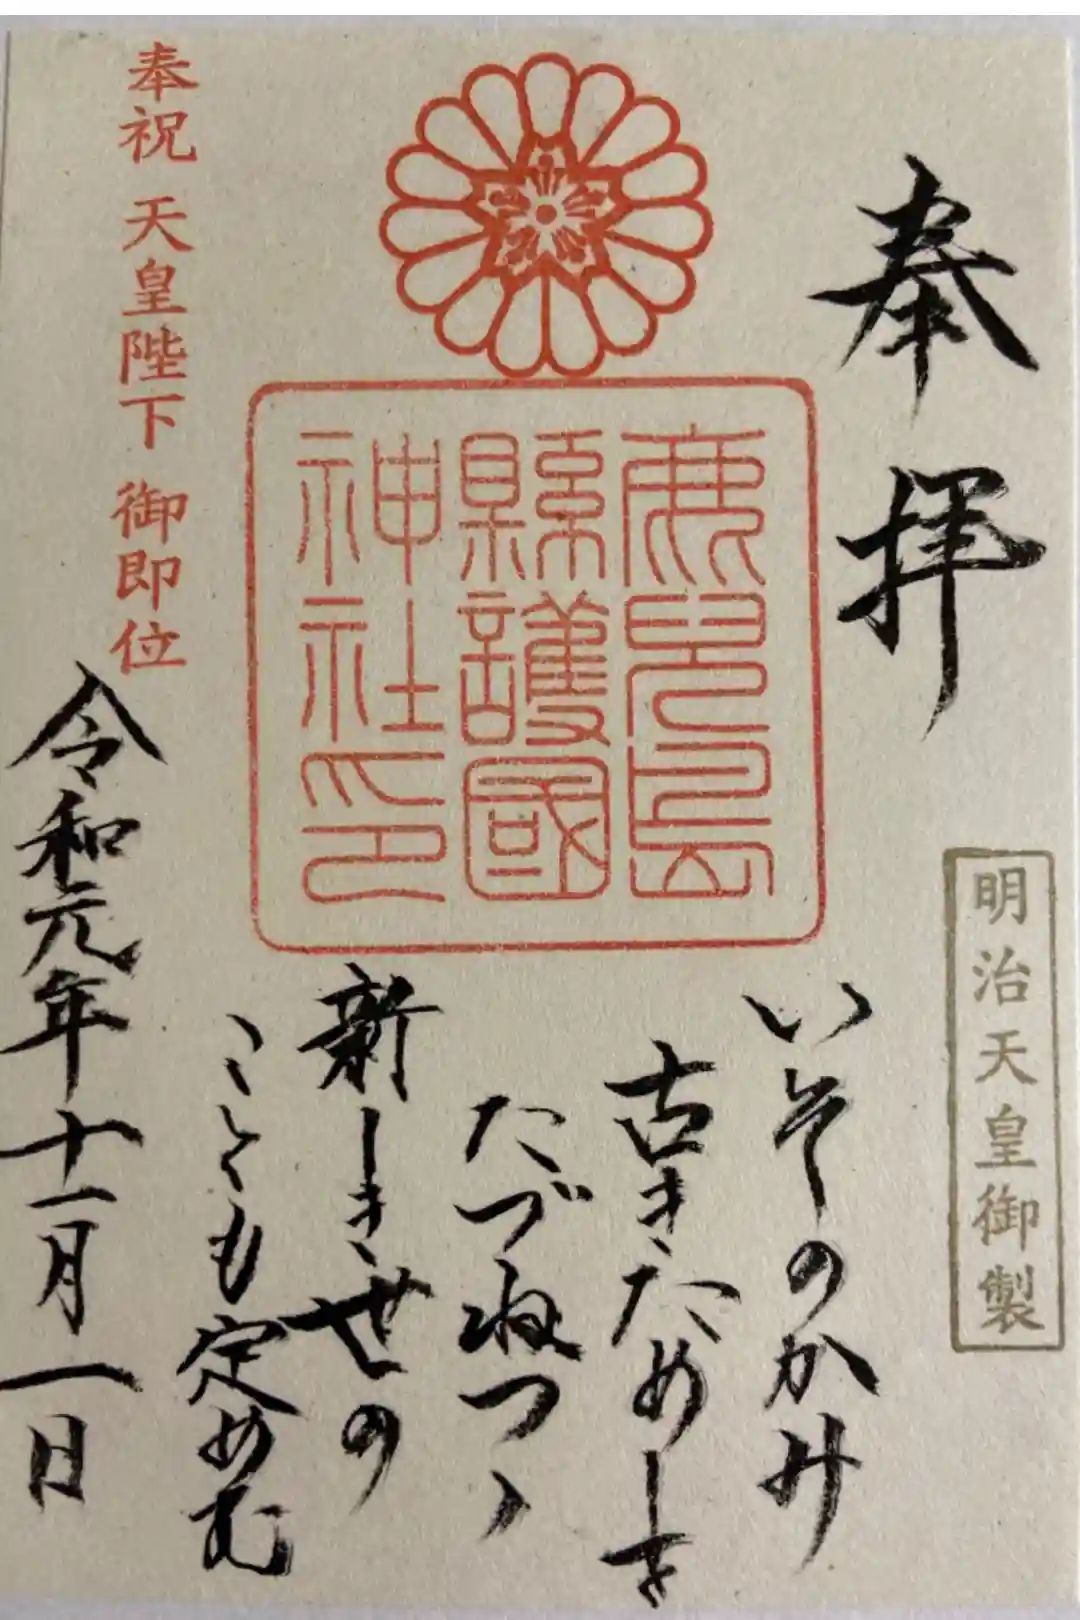 奉拝
明治天皇御製
鹿兒島
縣護國
神社印
いそのかみ
古きためしを
たづねつゝ
新しき世の
こともも定めむ
奉祝 天皇陛下 御即位
令和元年十一月一日